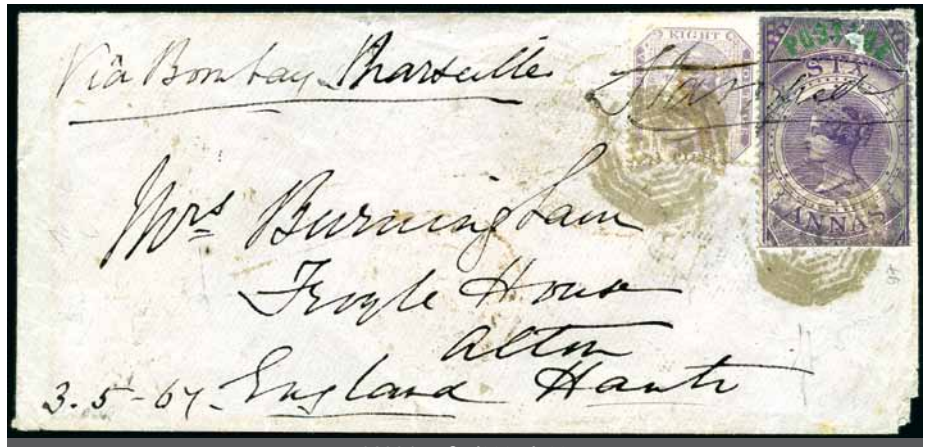 Via Bombay Marseille Stamped
EIGHT
POSTAGE
ANNAS
Mrs Burningham
Froyle House
Alton
3.5-67 England Hants